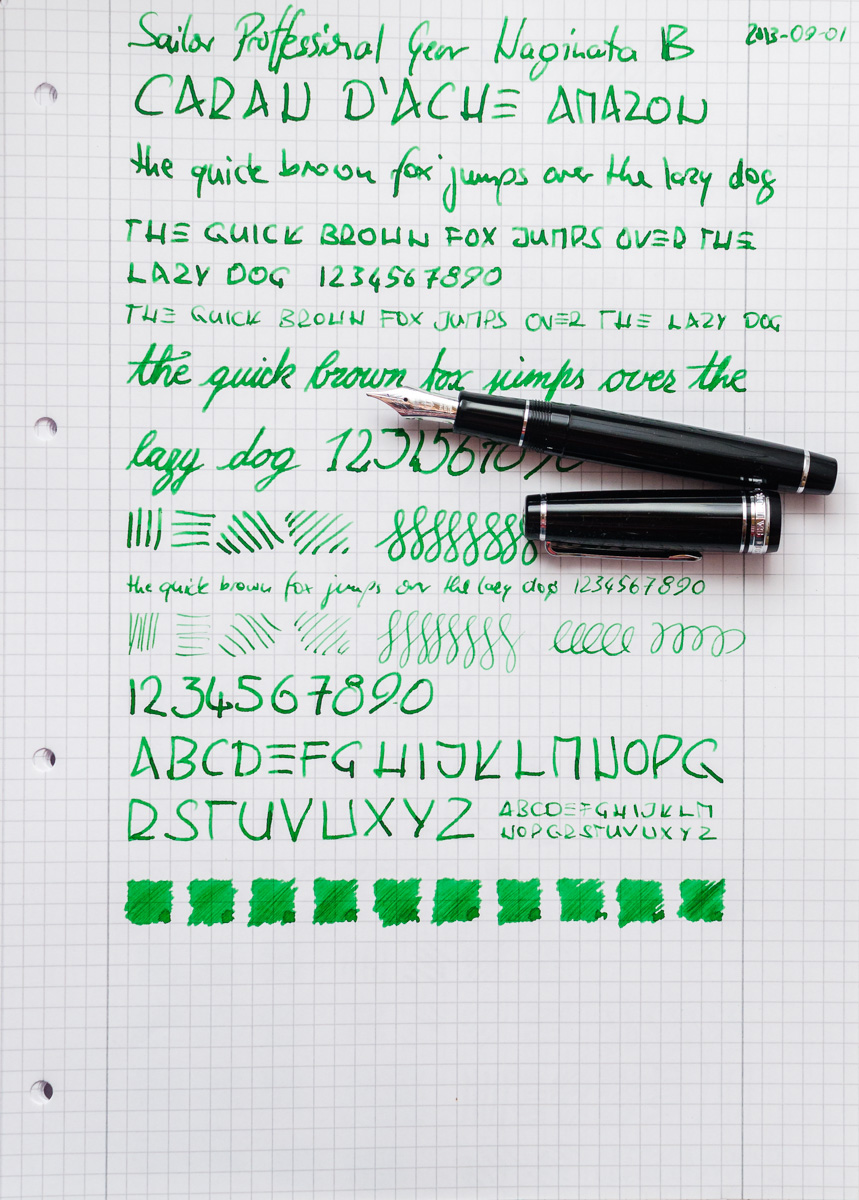 Sailor Proffessional Gear Naginata B 2013-09-01
CARAN D'ACHE AMAZON
the quick brown fox jumps over the lazy dog
THE QUICK BROWN FOX JUMPS OVER THE
LAZY DOG 1234567890
THE QUICK BROWN FOX JUMPS OVER THE LAZY DOG
the quick brown fox jumps over the
lazy dog 1234567890
the quick brown fox jumps over the lazy dog 1234567890
1234567890
ABCDEFGHIJKLMNOPQ
RSTUVWXYZ
ABCDEFGHIJKLM
NOPQRSTUVWXYZ